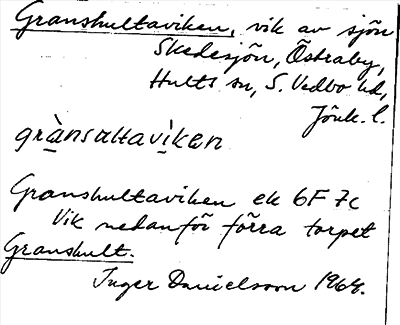 Granshultaviken, vik av sjön
Skedesjön, Östraby,
Hults sn, S. Vedbo hd,
Jönk. l.
grànsaltaviken
Granshultaviken ek 6F 7c
Vik nedanför förra torpet
Granshult.
Inger Danielsson 1964.